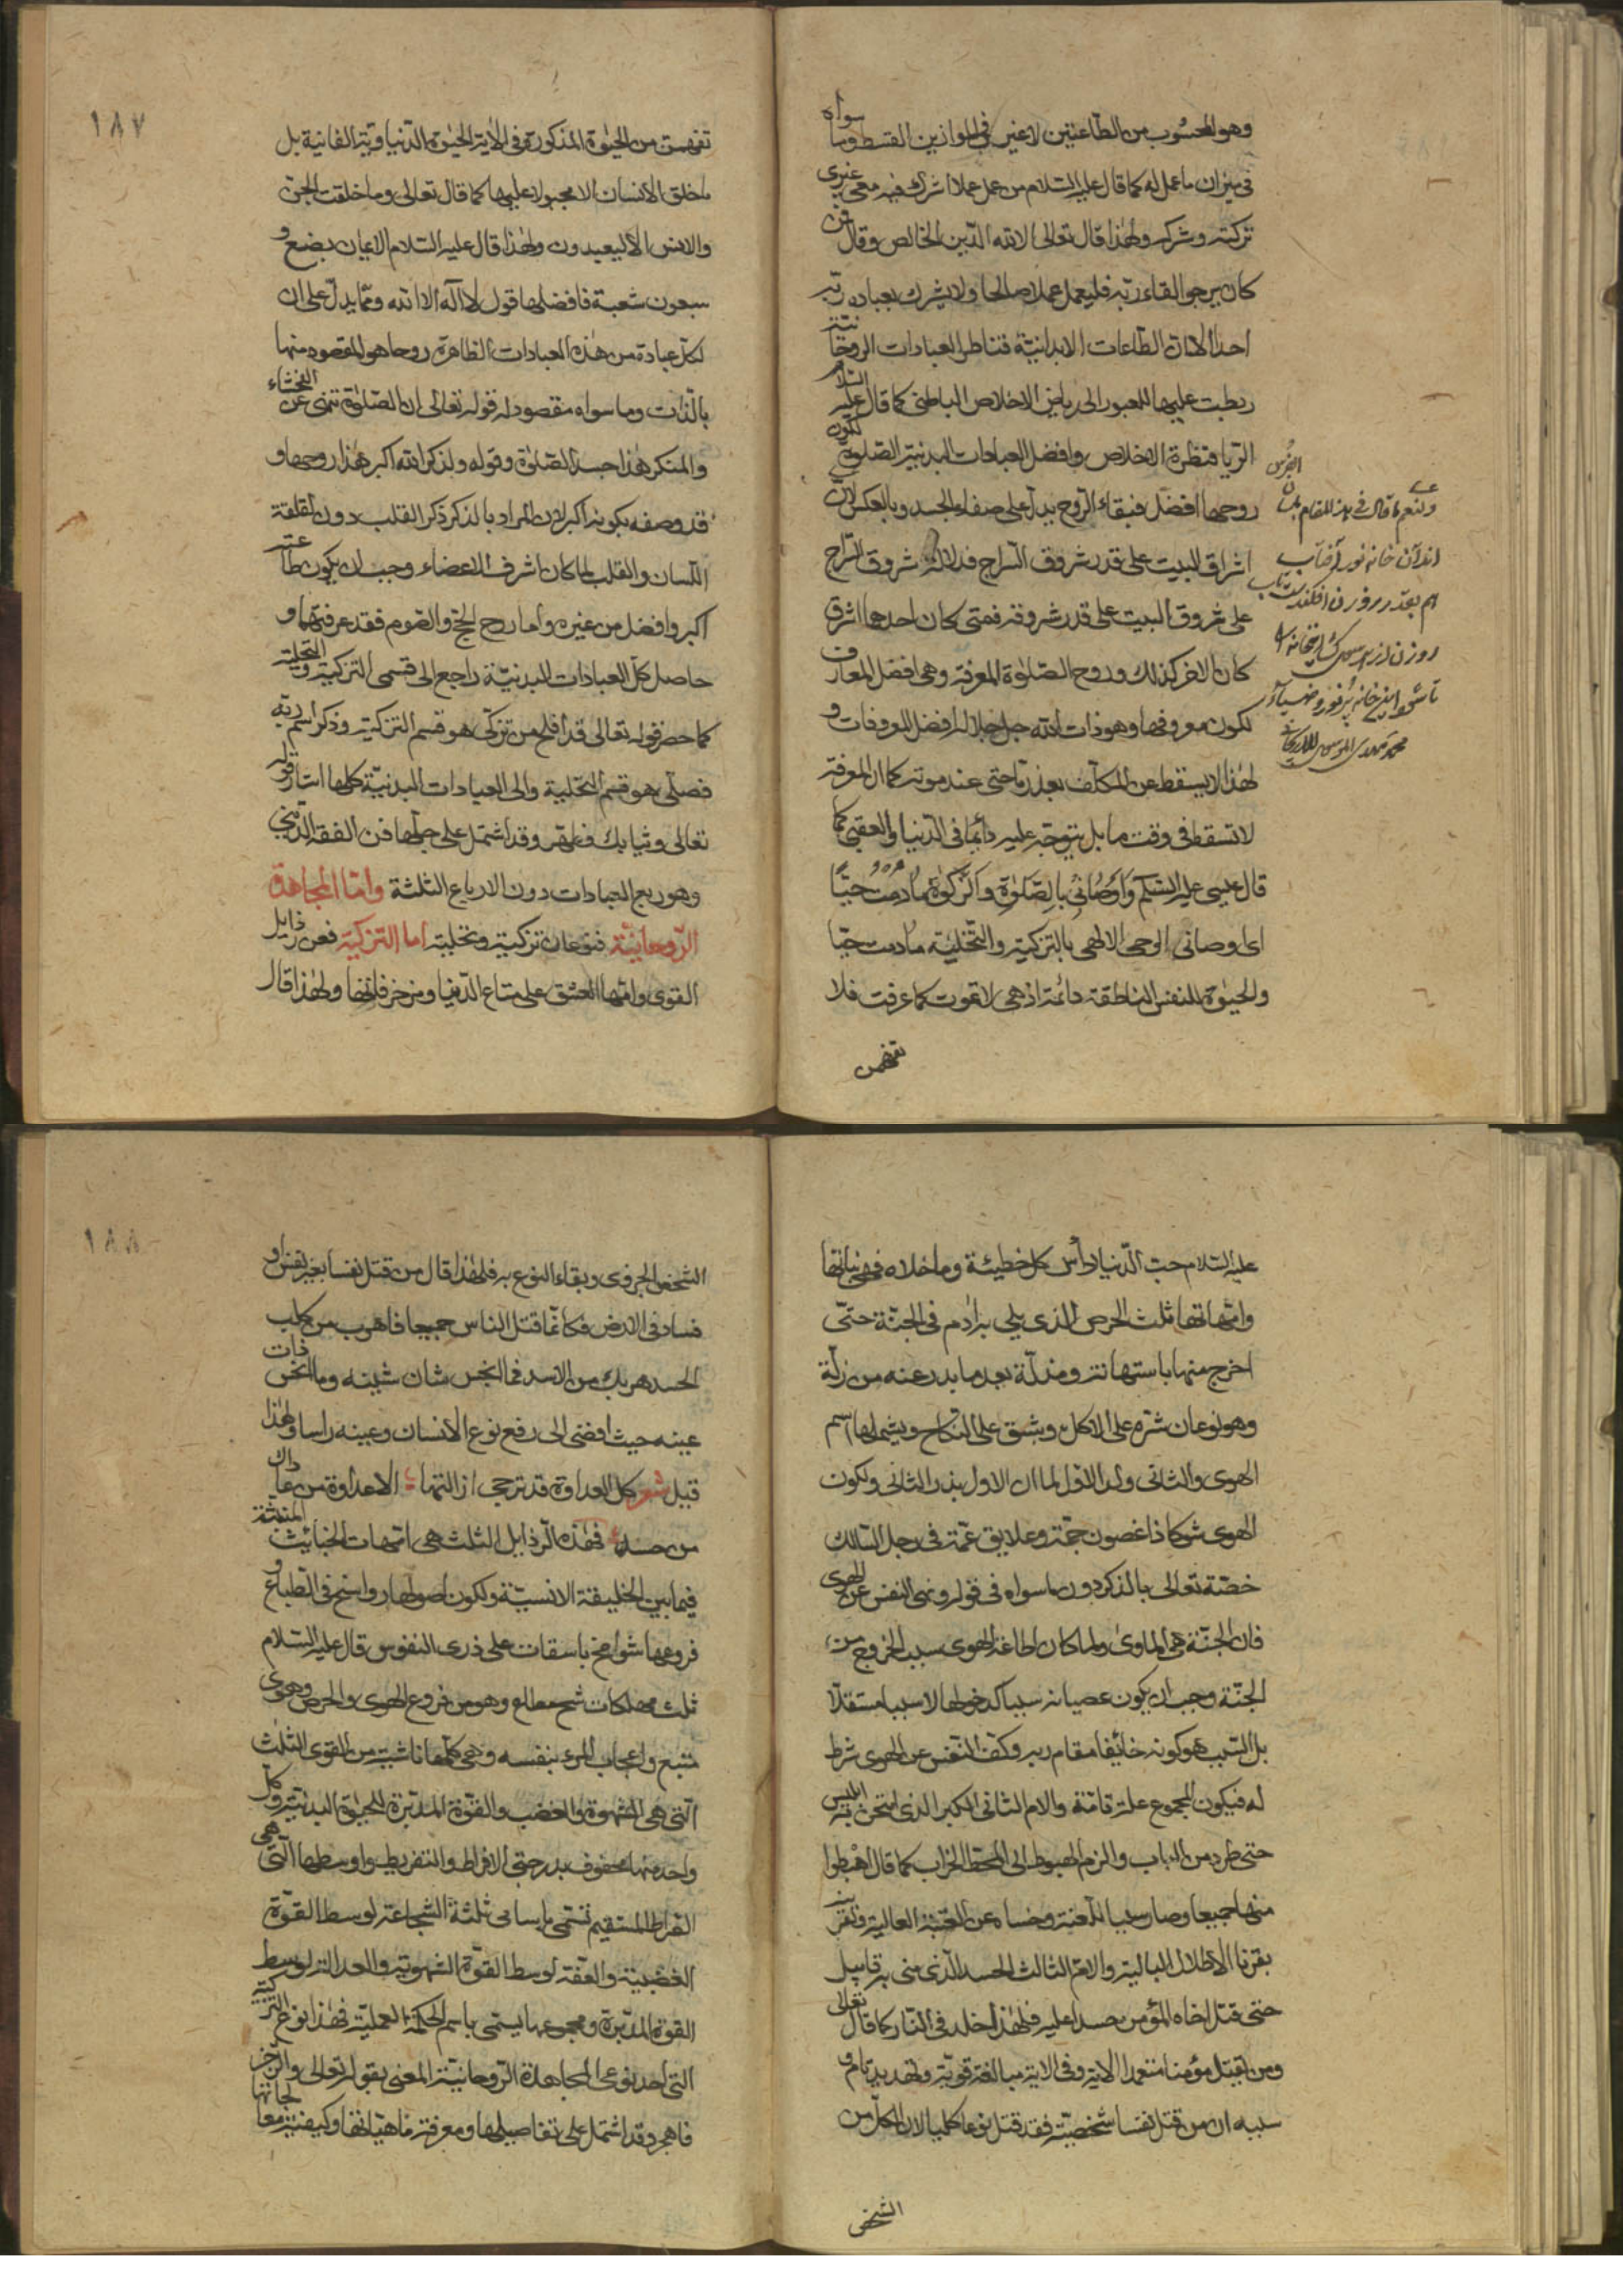 وهو المحسوب من الطاعتين لا غير في الموازين القسط وما سواه
في ميزان ما عمل له كما قال عليه السلام من عمل عملا اشرك فيه معي غيري
تركته وشركه ولهذا قال تعالى الا لله الدين الخالص وقال فمن
كان يرجو القاء ربه فليعمل عملا صالحا ولا يشرك بعبادة ربه
احدا لان الطاعات الابدانية قناطر العبادات الروحانية
ربطت عليها للعبور الى رياض الاخلاص الباطني كما قال عليه السلام
الريا قنطرة الاخلاص وافضل العبادات البدنية الصلوة لكون
روحها افضل فبقاء الروح يدل على صفاء الجسد وبالعكس لان
اشراق البيت على قدر شروق السراج فدلالة شروق السراج
على شروق البيت على قدر شروقه فمتى كان احدهما اشرق
كان الاخر كذلك وروح الصلوة المعرفة وهي افضل المعارف
لكون معروفها وهو ذات الله جل جلاله افضل المعروفات و
لهذا لا يسقط عن المكلف بعذر ما حتى عند موته كما ان المعرفة
لا تسقط في وقت ما بل يتوجه عليه دائما في الدنيا والعقبى كما
قال عيسى عليه السلم وَاَوْصَانِي بِالصَّلوٰةِ وَالزَّكوٰةِ مَا دُمْتُ حَيًّا
اى اوصانى الوحى الالهى بالتزكية والتحلية ما دمت حيّا
والحيوة للنفس الناطقة دائمة اذ هى لا تموت كما عرفت فلا
تفهمن
ولنعم ما قال في هذا المقام بلسان الفرس
اندان خانه نور آفتاب
هم بقدر روزن افكندست تاب
تا شود اين خانه پر نور و ضياء
١٨٧
تفهمن من الحيوة المذكورة في الآية الحيوة الدنياوية الفانية بل
ما خلق الانسان الا مجبولا عليها كما قال تعالى وما خلقت الجن
والانس الا ليعبدون ولهذا قال عليه السلام الايمان بضع و
سبعون شعبة فافضلها قول لا اله الا الله وممّا يدلّ على ان
لكل عبادة من هذه العبادات الظاهرة روحا هو المقصود منها
بالذات وما سواه مقصود له قوله تعالى ان الصلوة تنهى عن الفحشاء
والمنكر هذا جسد الصلوة وقوله ولذكر الله اكبر هذا روحها و
قد وصفه بكونه اكبر لان المراد بالذكر ذكر القلب دون لقلقة
اللسان والقلب لما كان اشرف الاعضاء وجب ان يكون طاعته
اكبر وافضل من غيره واما روح الحج والصوم فقد عرفتهما و
حاصل كل العبادات البدنية راجع الى قسمى التزكية والتحلية
كما حصر قوله تعالى قد افلح من تزكى هو قسم التزكية وذكر اسم ربه
فصلى هو قسم التحلية والى العبادات البدنية كلها اشار قوله
تعالى وثيابك فطهر وقد اشتمل على جملها فن الفقه الدينى
وهو ربع العبادات دون الارباع الثلثة وامّا المجاهدة
الرّوحانيّة فنوعان تزكية وتحلية اما التزكية فعن رذايل
القوى وامّها العشق على متاع الدنيا ومزخرفاتها ولهذا قال
عليه السلام حب الدنيا رأس كل خطيئة وما خلاه فهى بناتها
وامّهاتها ثلث الحرص الذى بلى به ادم في الجنة حتّى
اخرج منها باستهانة ومذلّة بعد ما بدر عنه من زلّة
وهو نوعان شره على الاكل وشبق على النكاح ويشملها اسم
الهوى والثانى ولد الاول لما ان الاول بذر الثانى ولكون
الهوى شوكا ذا غصون جمّة وعلايق عمّة في رجل السالك
خصّه تعالى بالذكر دون ما سواه في قوله ونهى النفس عن الهوى
فان الجنّة هى المأوى ولما كان اطاعة الهوى سبب الخروج من
الجنّة وجب ان يكون عصيانه سببا لدخولها لا سببا مستقلا
بل السبب هو كونه خائفا مقام ربه وكف النفس عن الهوى شرط
له فيكون المجموع علة تامّة والام الثانى الكبر الذى امتحن به ابليس
حتى طرد من الباب والزم الهبوط الى المحط الخراب كما قال اهْبِطوا
منها جميعا وصار سببا للعنة وخساه عن العتبة العالية
بقرنا الاطلال البالية والام الثالث الحسد الذى منى به قابيل
حتى قتل اخاه المؤمن حسدا عليه فلهذا اخلد في النار كما قال تعالى
ومن يقتل مؤمنا متعمدا الاية وفي الاية مبالغة قوية وتهديد تام و
سببه ان من قتل نفسا شخصيّة فقد قتل نوعا كليا لان الكل من
الشخص
١٨٨
الشخص الجزوى وبقاء النوع به فلهذا قال من قتل نفسا بغير نفس او
فساد في الارض فكانّما قتل الناس جميعا فاهرب من كلب
الحسد هربك من الاسد فما انجس شان شينه وما انحس ذات
عينه حيث افضى الى رفع نوع الانسان وعينه راسا ولهذا
قيل شعر كل العداوة قد ترجى ازالتها الا عداوة من عاداك
من حسد فهذه الرذايل الثلث هى امّهات الخبائث المنبثة
فيما بين الخليقة الانسيّة ولكون اصولها رواسخ في الطباع و
فروعها شوامخ باسقات على ذرى النفوس قال عليه السلام
ثلث مهلكات شح مطاع وهو من فروع الهوى والحرص وهوى
متبع واعجاب المرء بنفسه وهى كلها ناشية من القوى الثلث
التى هى الشهوة والغضب والقوّة المدبّرة للحيوة البدنية وكل
واحد منها محفوف بدرجتى الافراط والتفريط واوسطها التى هى
الصراط المستقيم تسمّى باسامى ثلثة الشجاعة لوسط القوّة
الغضبيّة والعفّة لوسط القوّة الشهوية والعدالة لوسط
القوة المدبّرة ومجموعها يسمى باسم الحكمة العمليّة فهذا نوع التزكية
التى احد نوعى المجاهدة الرّوحانيّة المعنى بقوله تعالى والرجز
فاهجر وقد اشتمل على تفاصيلها ومعرفة ماهياتها وكيفية معالجاتها